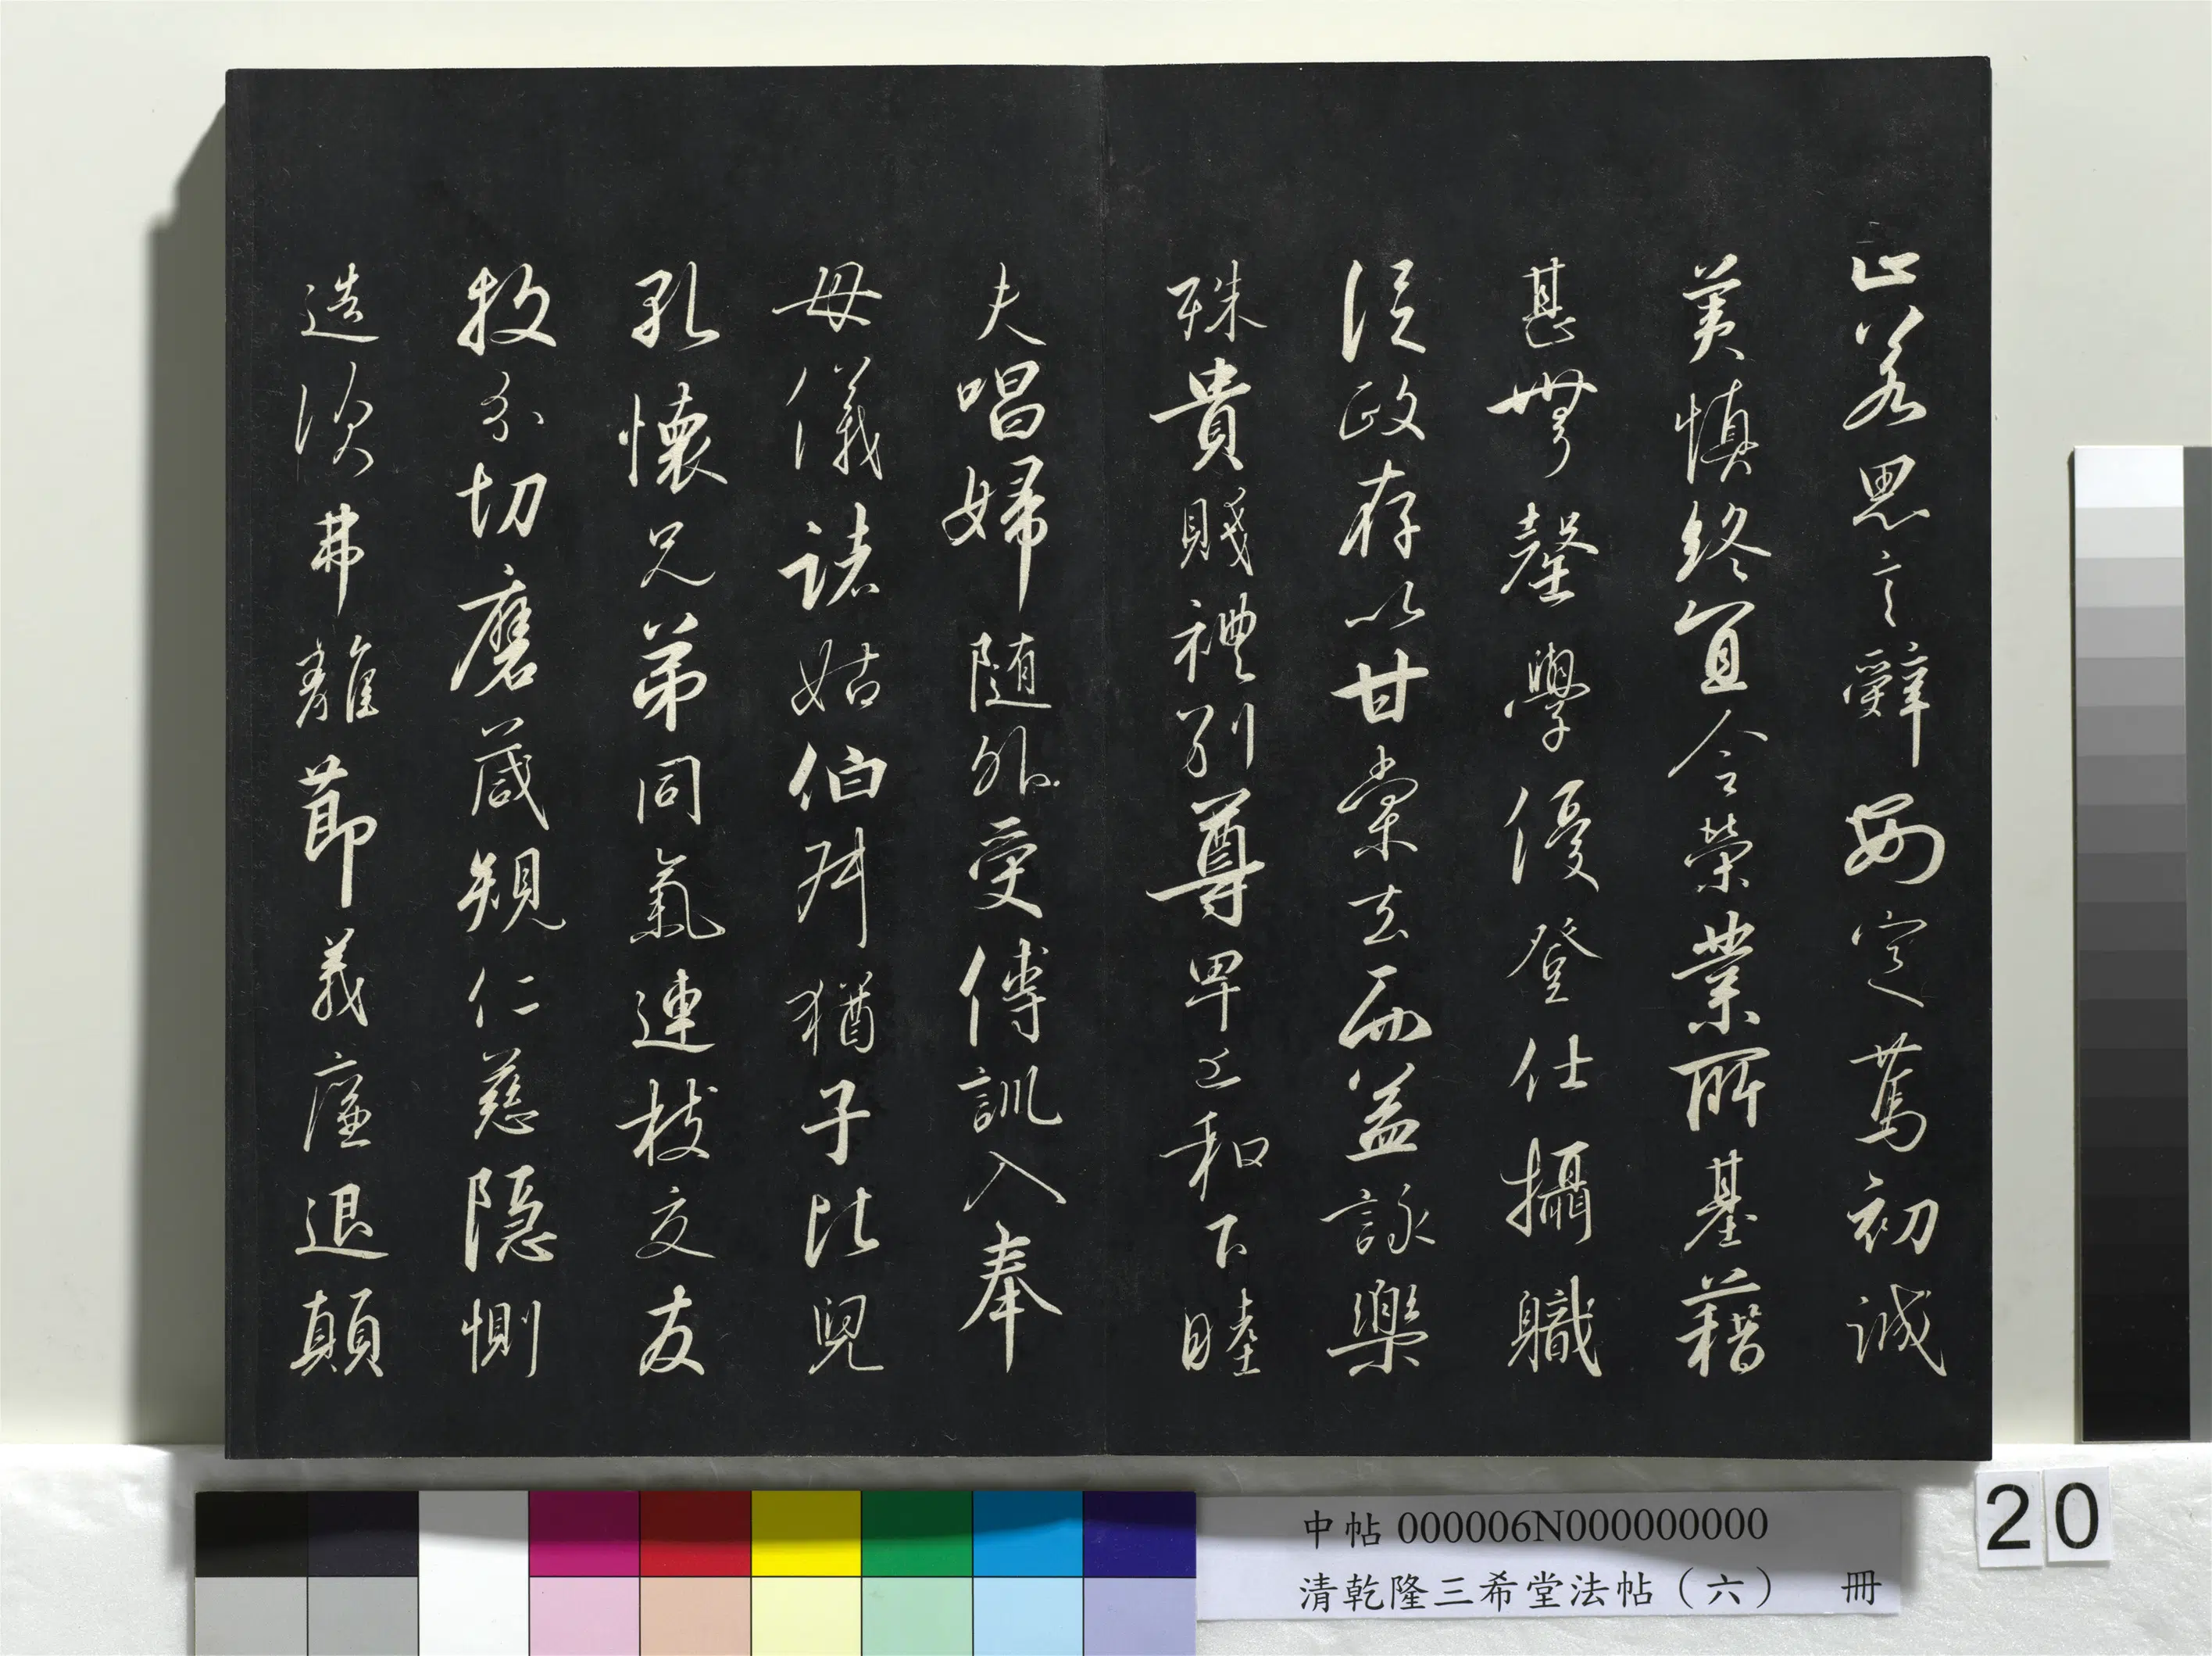 止若思言辭安定篤初誠
美慎終宜令榮業所基藉
甚無竟學優登仕攝職
從政存以甘棠去而益詠樂
殊貴賤禮別尊卑上和下睦
夫唱婦随外受傅訓入奉
母儀諸姑伯叔猶子比兒
孔懷兄弟同氣連枝交友
投分切磨箴規仁慈隱惻
造次弗離節義廉退顛
中帖000006N000000000
清乾隆三希堂法帖（六） 冊
20